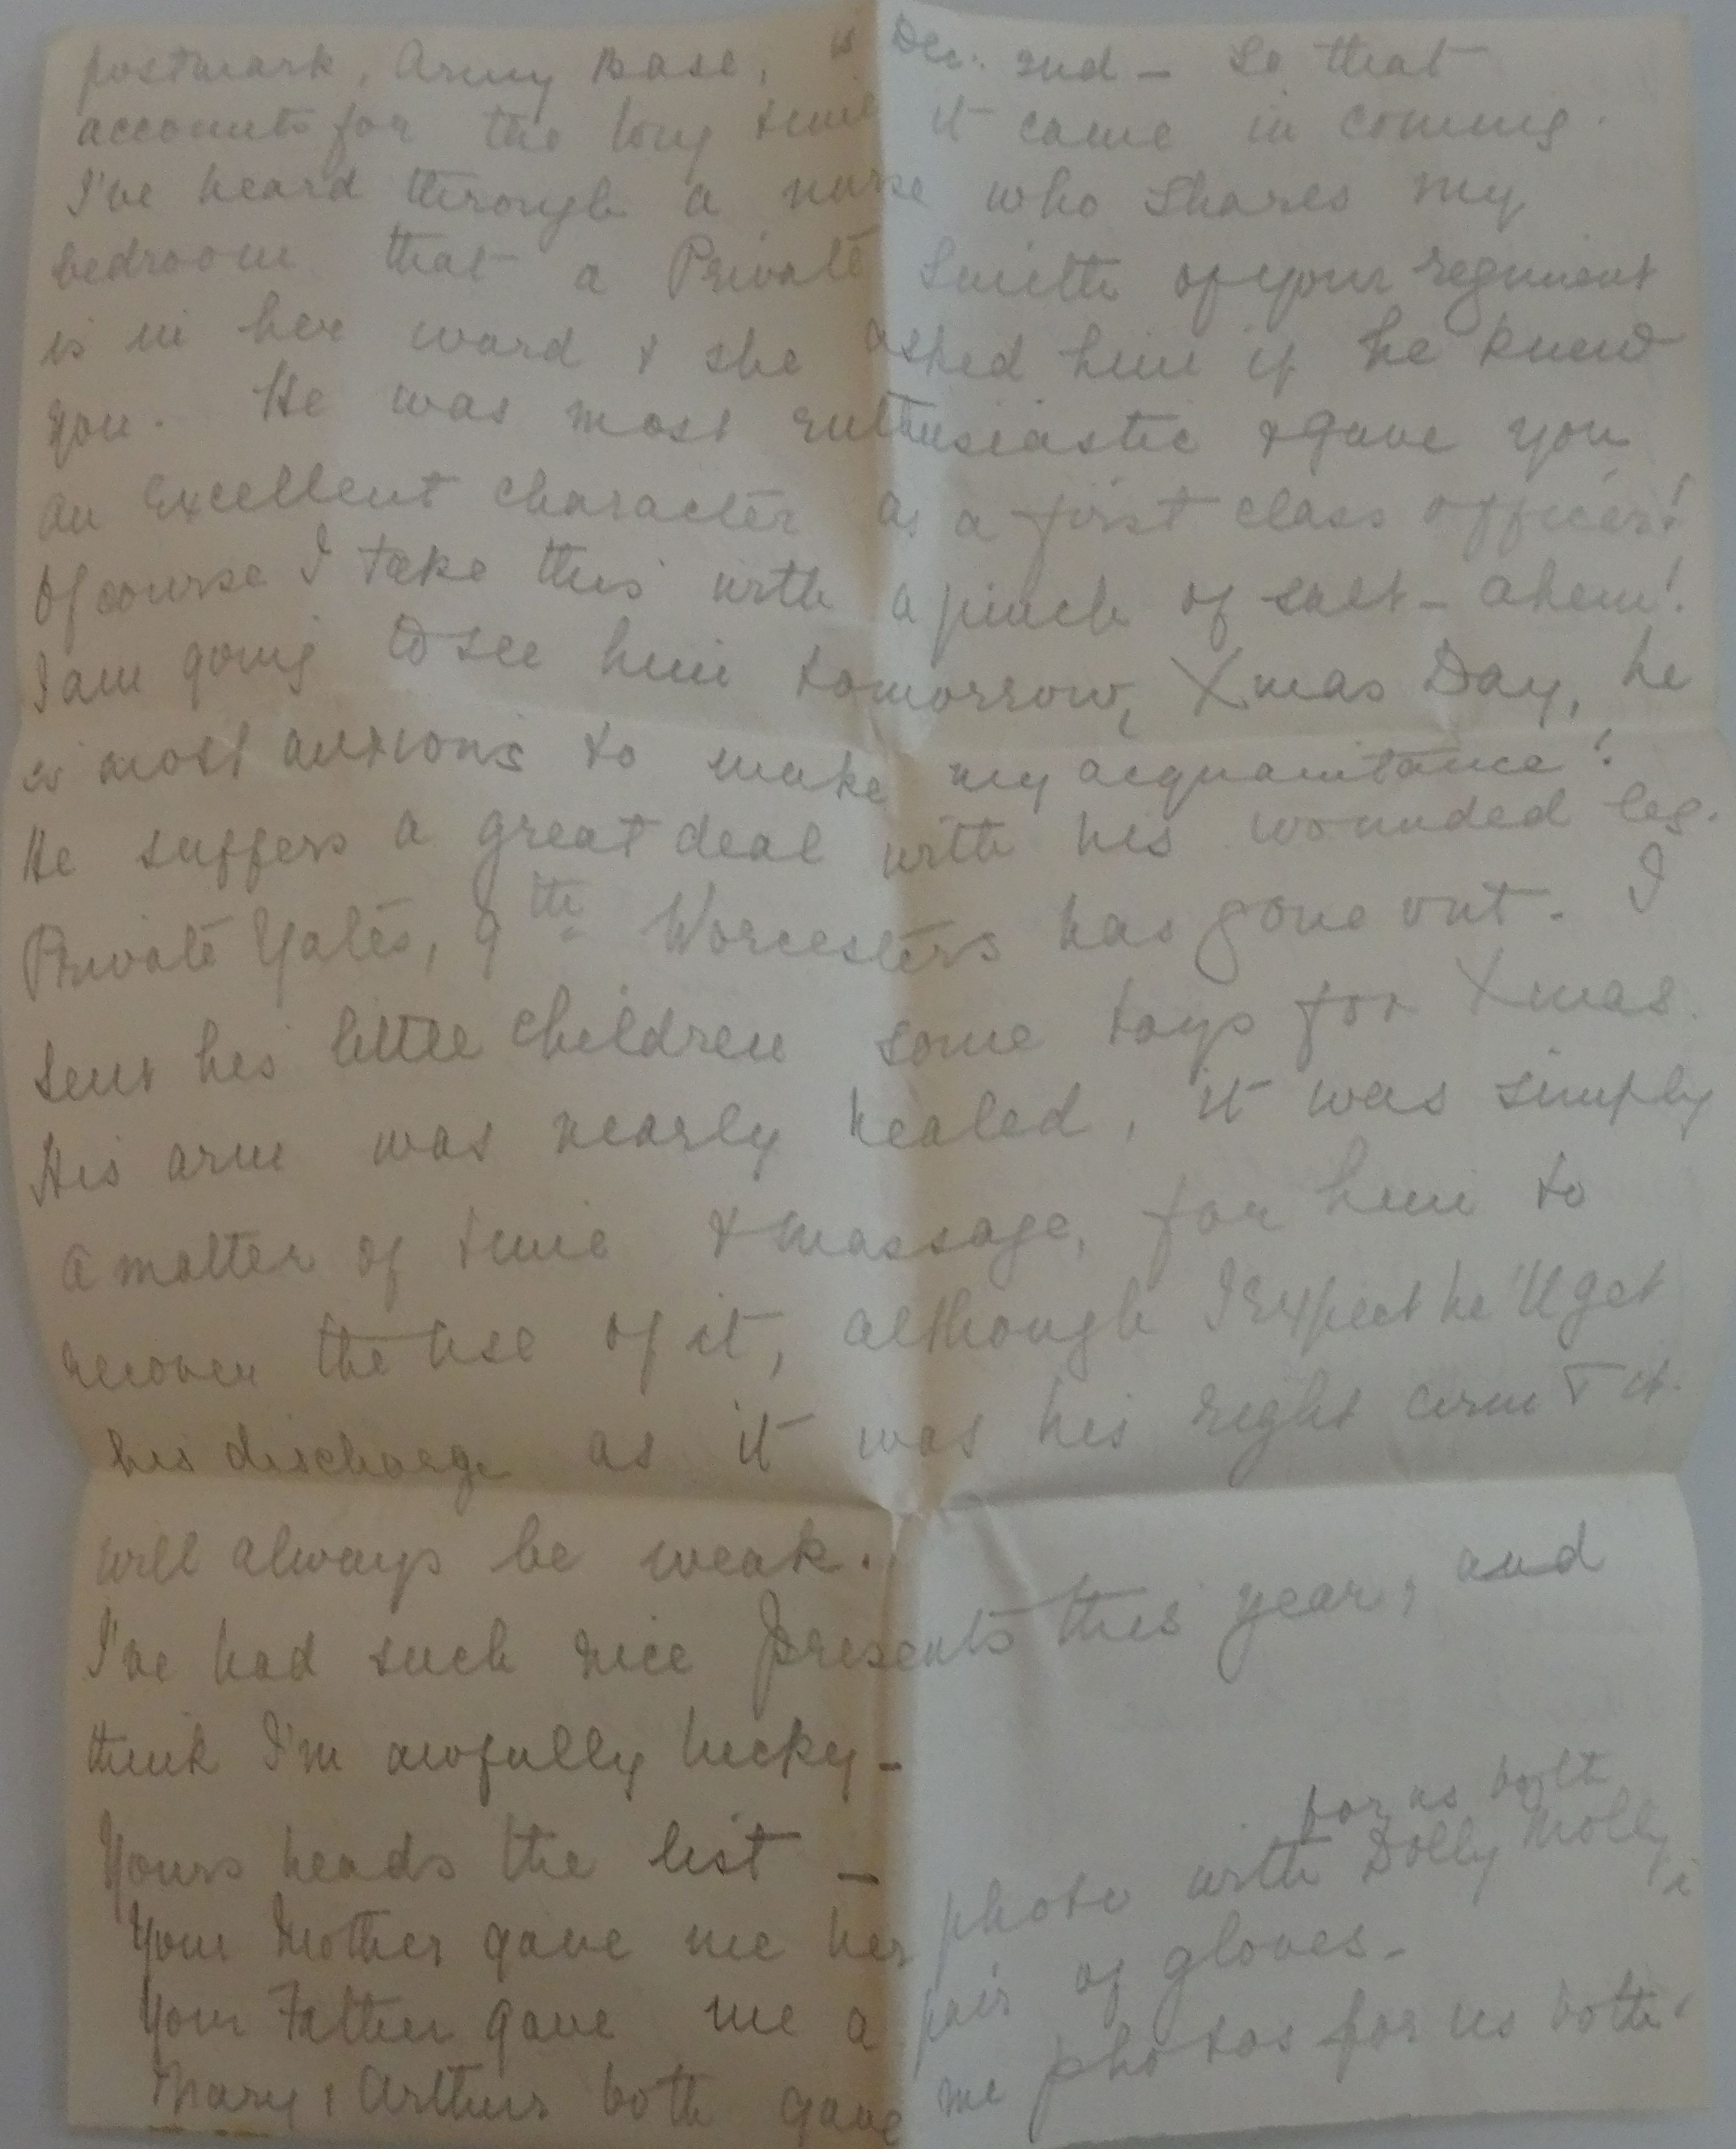 postmark, Army Base, is Dec. 2nd – so that
accounts for the long time it came in coming.
I've heard through a nurse who shares my
bedroom that a Private Smith of your regiment
is in her ward & she asked him if he knew
you. He was most enthusiastic & gave you
an excellent character as a first class officer!
Of course I take this with a pinch of salt – ahem!
I am going to see him tomorrow, Xmas Day, he
is most anxious to make my acquaintance!
He suffers a great deal with his wounded leg.
Private Yates, 9th Worcesters has gone out. I
sent his little children some toys for Xmas.
His arm was nearly healed, it was simply
a matter of time & massage, for him to
recover the use of it, although I expect he'll get
his discharge as it was his right arm & it
will always be weak.
I've had such nice presents this year, and
think I'm awfully lucky –
Yours heads the list –
for us both
Your Mother gave me her photo with Dolly Molly
Your Father gave me a pair of gloves –
Mary & Arthur both gave me photos for us both